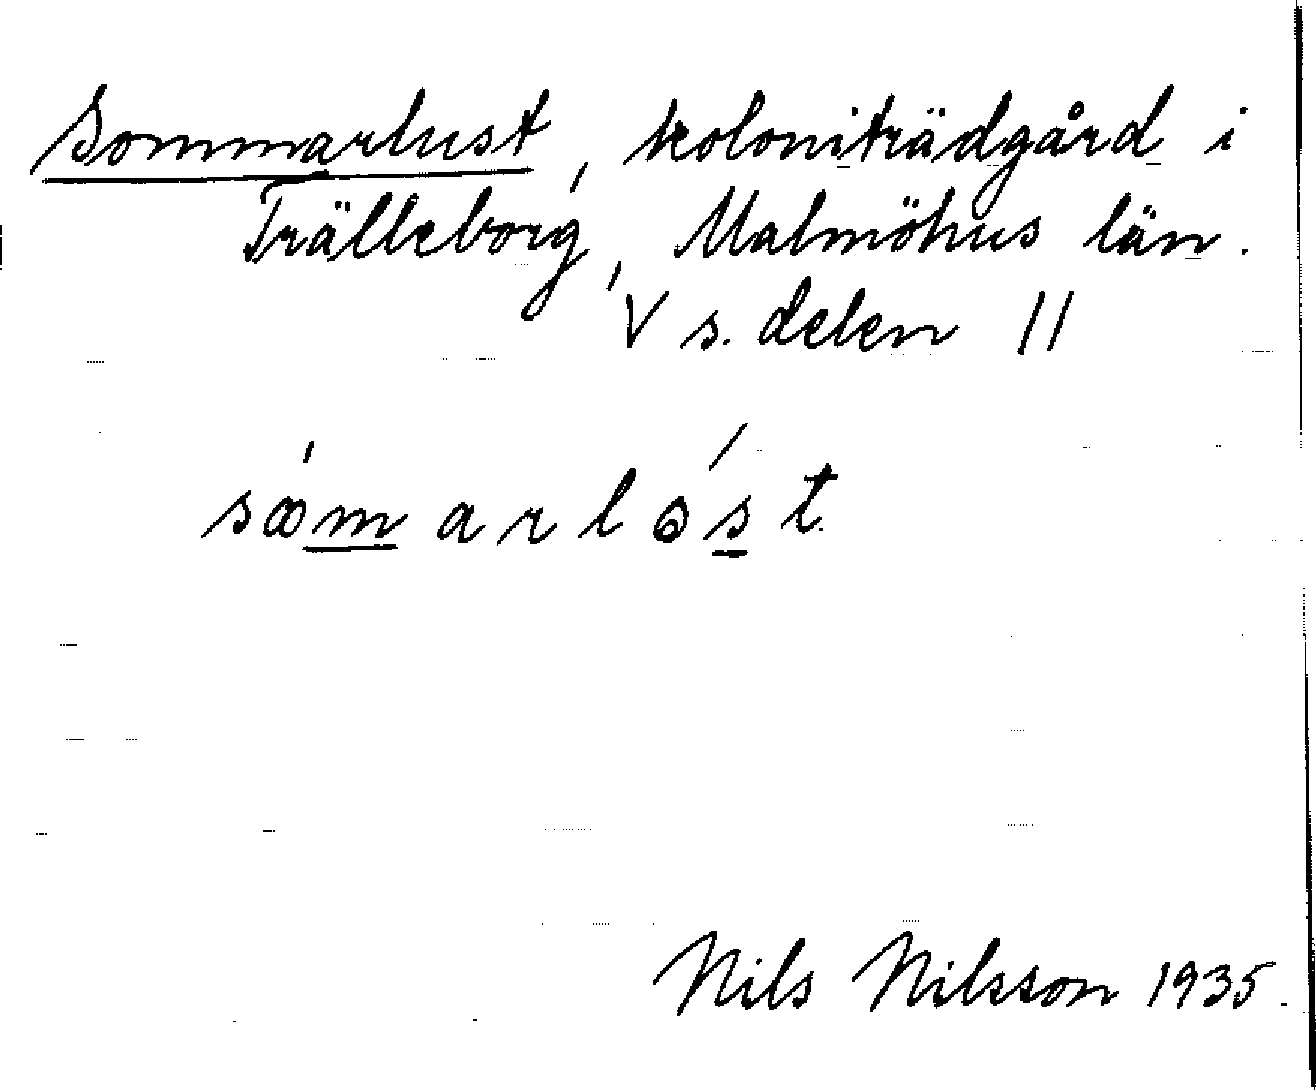 Sommarlust, koloniträdgård i
Trälleborg, Malmöhus län.
V s. delen 11
sꝏ́marlɵ́st
Nils Nilsson 1935.